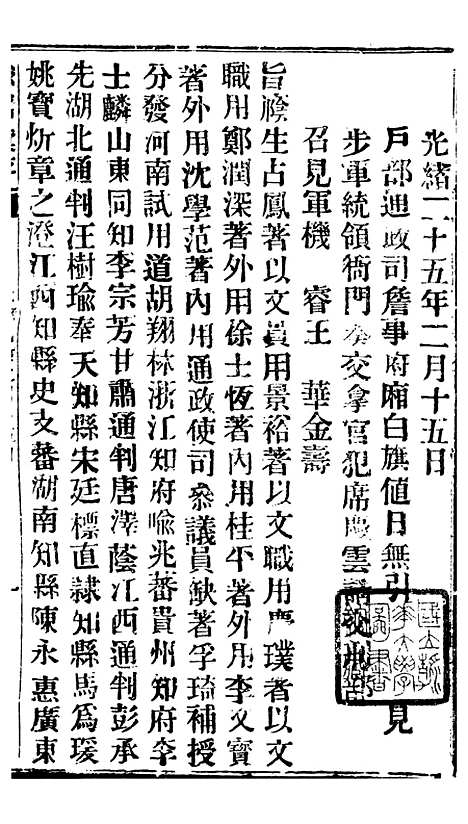 光緒二十五年二月十五日
戶部通政司詹事府廂白旗值日無引見
步軍統領衙門奏交拿官犯席慶雲請交刑部
召見軍機　睿王　華金壽
旨廕生占鳳著以文員用景裕著以文職用慶璞著以文
職用鄭潤深著外用徐士恆著內用桂本著外用李文寶
著外用沈學范著內用通政使司叅議員缺著孚琦補授
分發河南試用道胡翔林浙江知府喩兆蕃貴州知府李
士麟山東同知李宗芳甘肅通判唐澤蔭江西通判彭承
先湖北通判汪樹瑜奉天知縣宋廷標直隷知縣馬爲瑗
姚寶炘章之澄江西知縣史文蕃湖南知縣陳永惠廣東
國立清華大學圖書館